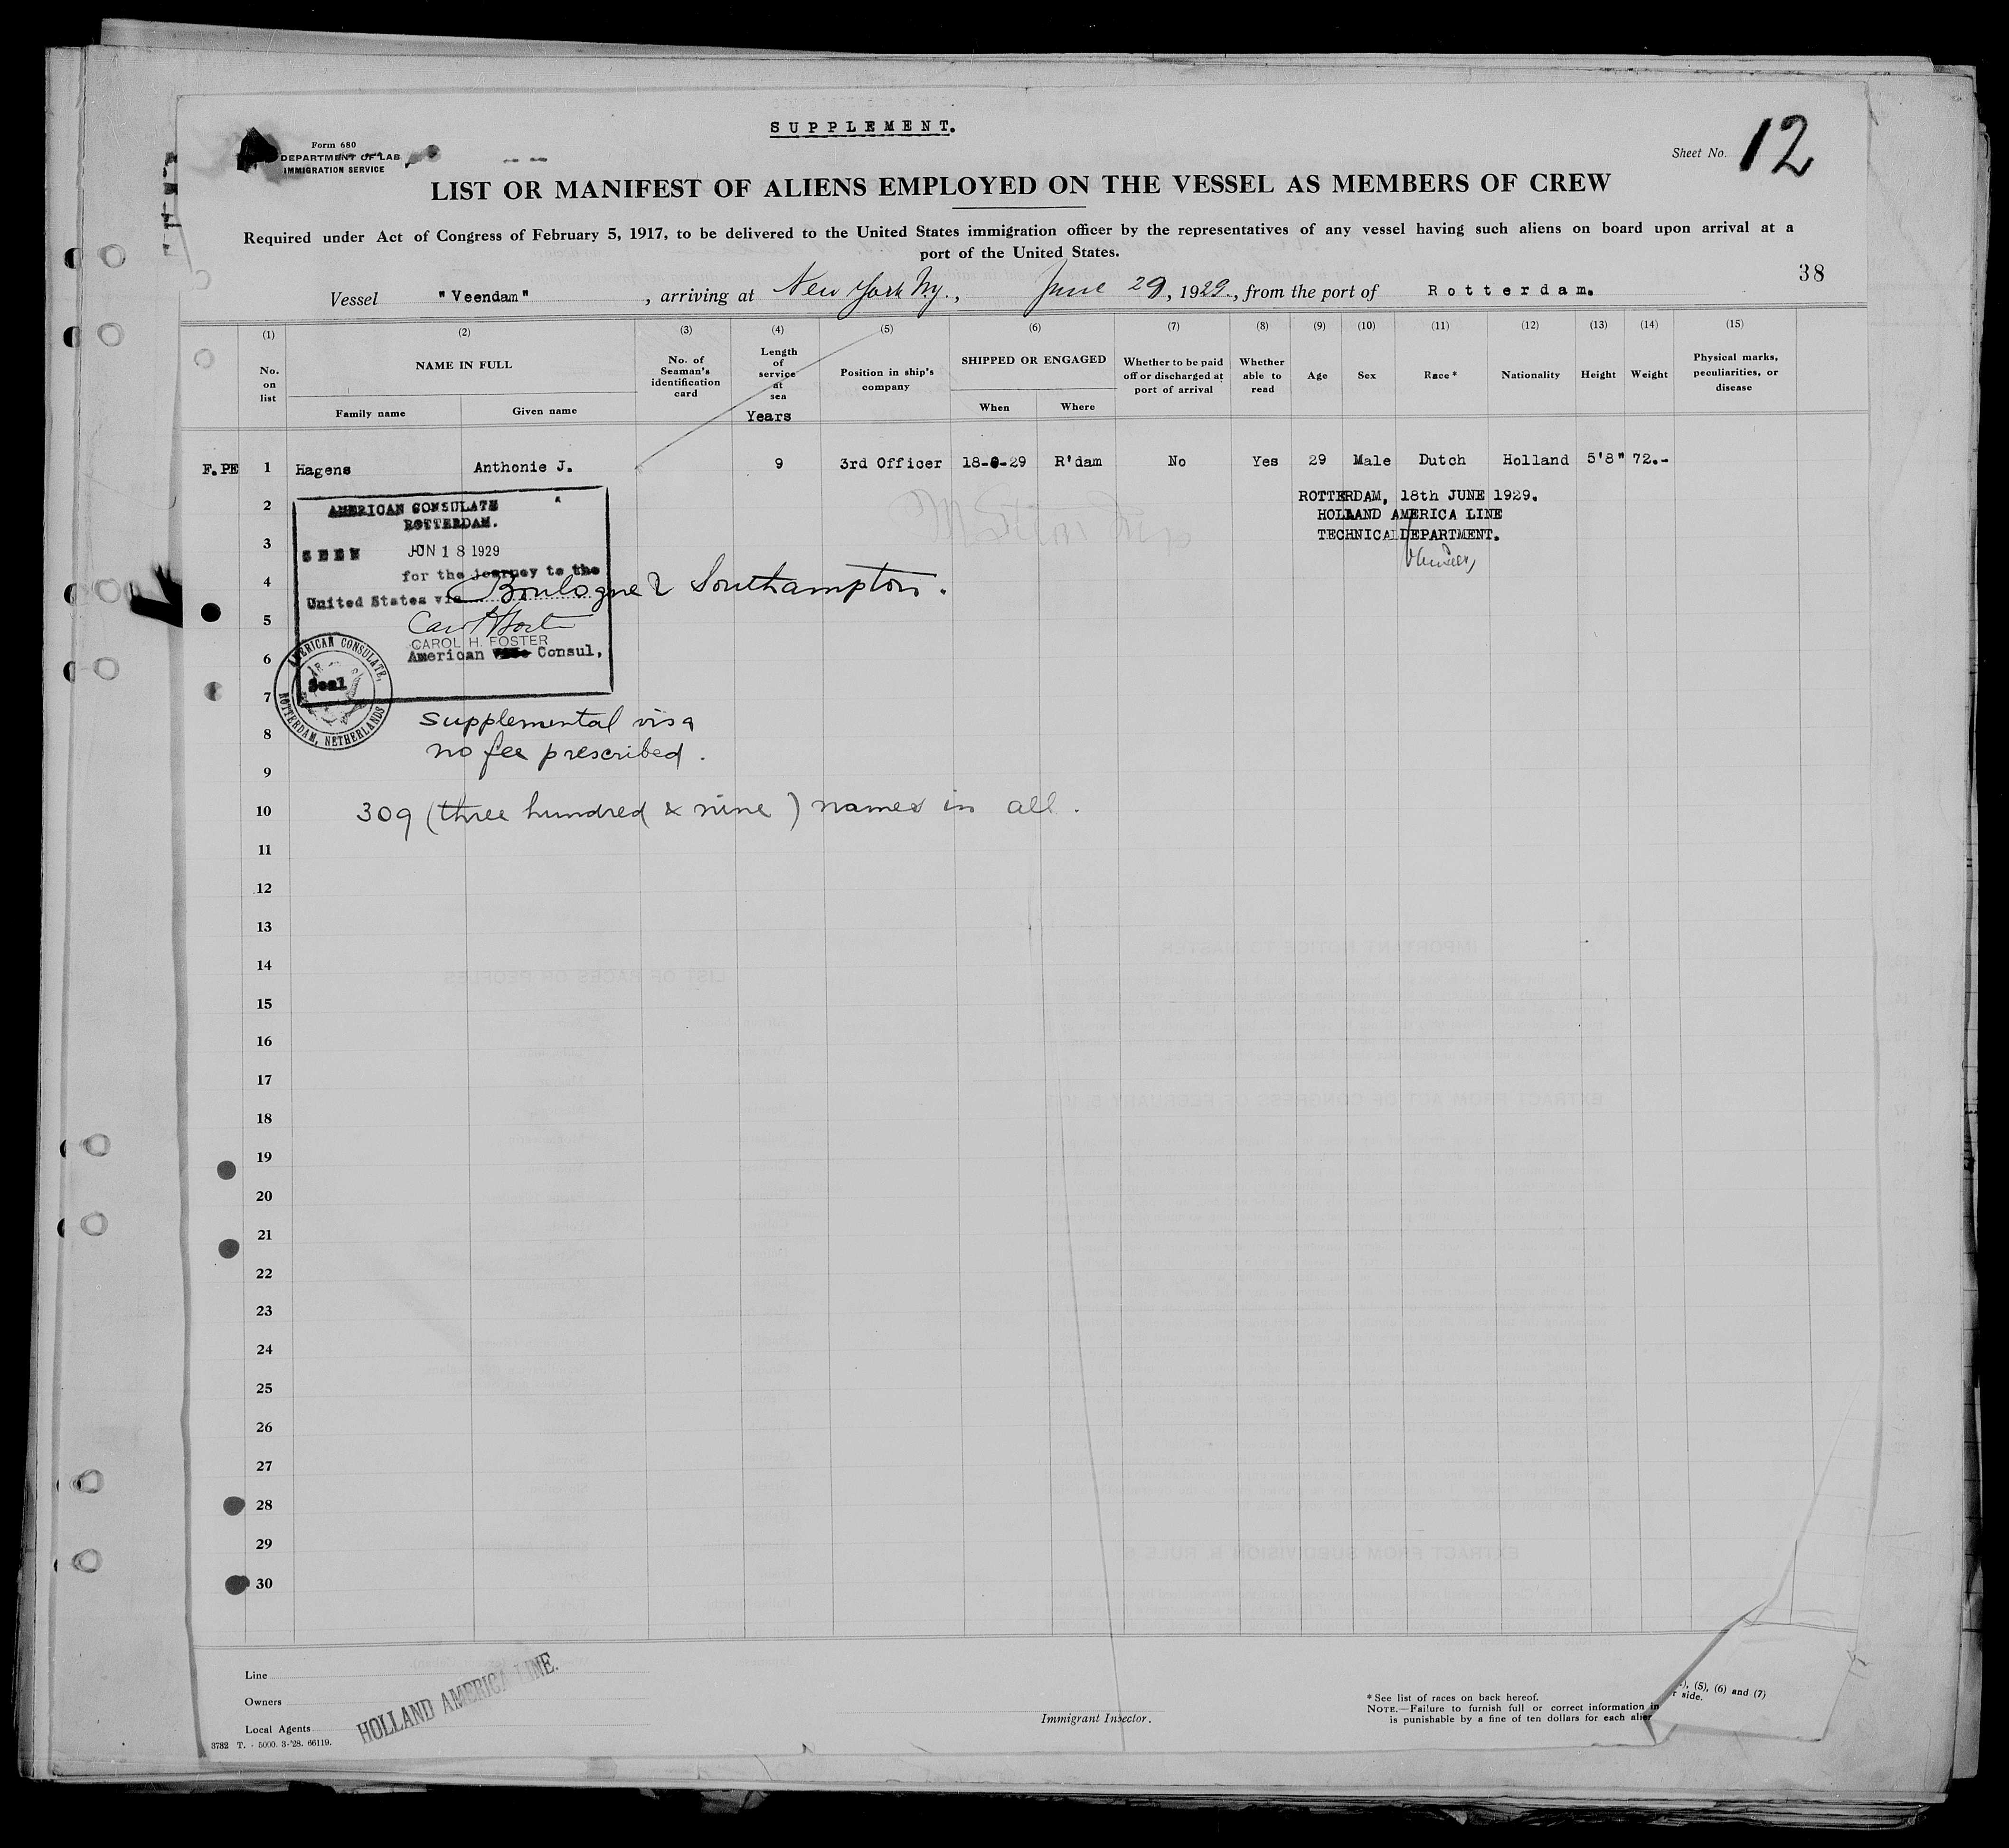 SUPPLEMENT.
Form 680
DEPARTMENT OF LAB
IMMIGRATION SERVICE
Sheet No. 12
LIST OR MANIFEST OF ALIENS EMPLOYED ON THE VESSEL AS MEMBERS OF CREW
Required under Act of Congress of February 5, 1917, to be delivered to the United States immigration officer by the representatives of any vessel having such aliens on board upon arrival at a
port of the United States.
38
Vessel "Veendam", arriving at New York Ny., June 29, 1929, from the port of Rotterdam.
(1) (2) (3) (4) (5) (6) (7) (8) (9) (10) (11) (12) (13) (14) (15)
No. on list
NAME IN FULL
Family name
Given name
No. of Seaman's identification card
Length of service at sea
Years
Position in ship's company
SHIPPED OR ENGAGED
When
Where
Whether to be paid off or discharged at port of arrival
Whether able to read
Age
Sex
Race *
Nationality
Height
Weight
Physical marks, peculiarities, or disease
F.PE 1 Hagens Anthonie J. 9 3rd Officer 18-6-29 R'dam No Yes 29 Male Dutch Holland 5'8" 72.-
2
3
4
5
6
7
8
9
10
11
12
13
14
15
16
17
18
19
20
21
22
23
24
25
26
27
28
29
30
AMERICAN CONSULATE
ROTTERDAM.
SEEN JUN 18 1929
for the journey to the
United States via Boulogne & Southampton.
CAROL H. FOSTER
American Vice Consul,
Seal
AMERICAN CONSULATE,
ROTTERDAM, NETHERLANDS
supplemental visa
no fee prescribed.
309 (three hundred & nine) names in all.
ROTTERDAM, 18th JUNE 1929.
HOLLAND AMERICA LINE
TECHNICAL DEPARTMENT.
Line
Owners
Local Agents
HOLLAND AMERICA LINE.
3782 T. - 5000. 3-'28. 66119.
Immigrant Inspector.
* See list of races on back hereof.
NOTE.—Failure to furnish full or correct information in
is punishable by a fine of ten dollars for each alien
, (5), (6) and (7)
r side.